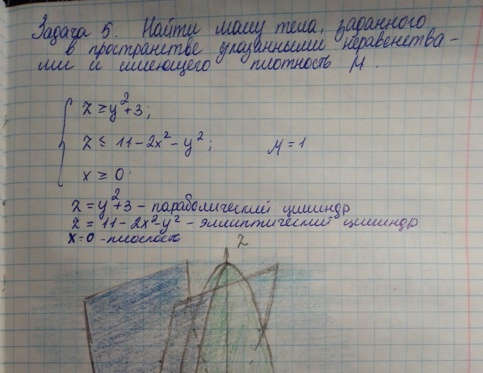 Задача 5. Найти массу тела, заданного
в пространстве указанными неравенства-
ми и имеющего плотность μ.
z ≥ y²+3;
z ≤ 11-2x²-y²; μ=1
x ≥ 0.
z=y²+3 - параболический цилиндр
z=11-2x²-y² - эллиптический цилиндр
x=0 - плоскость
z